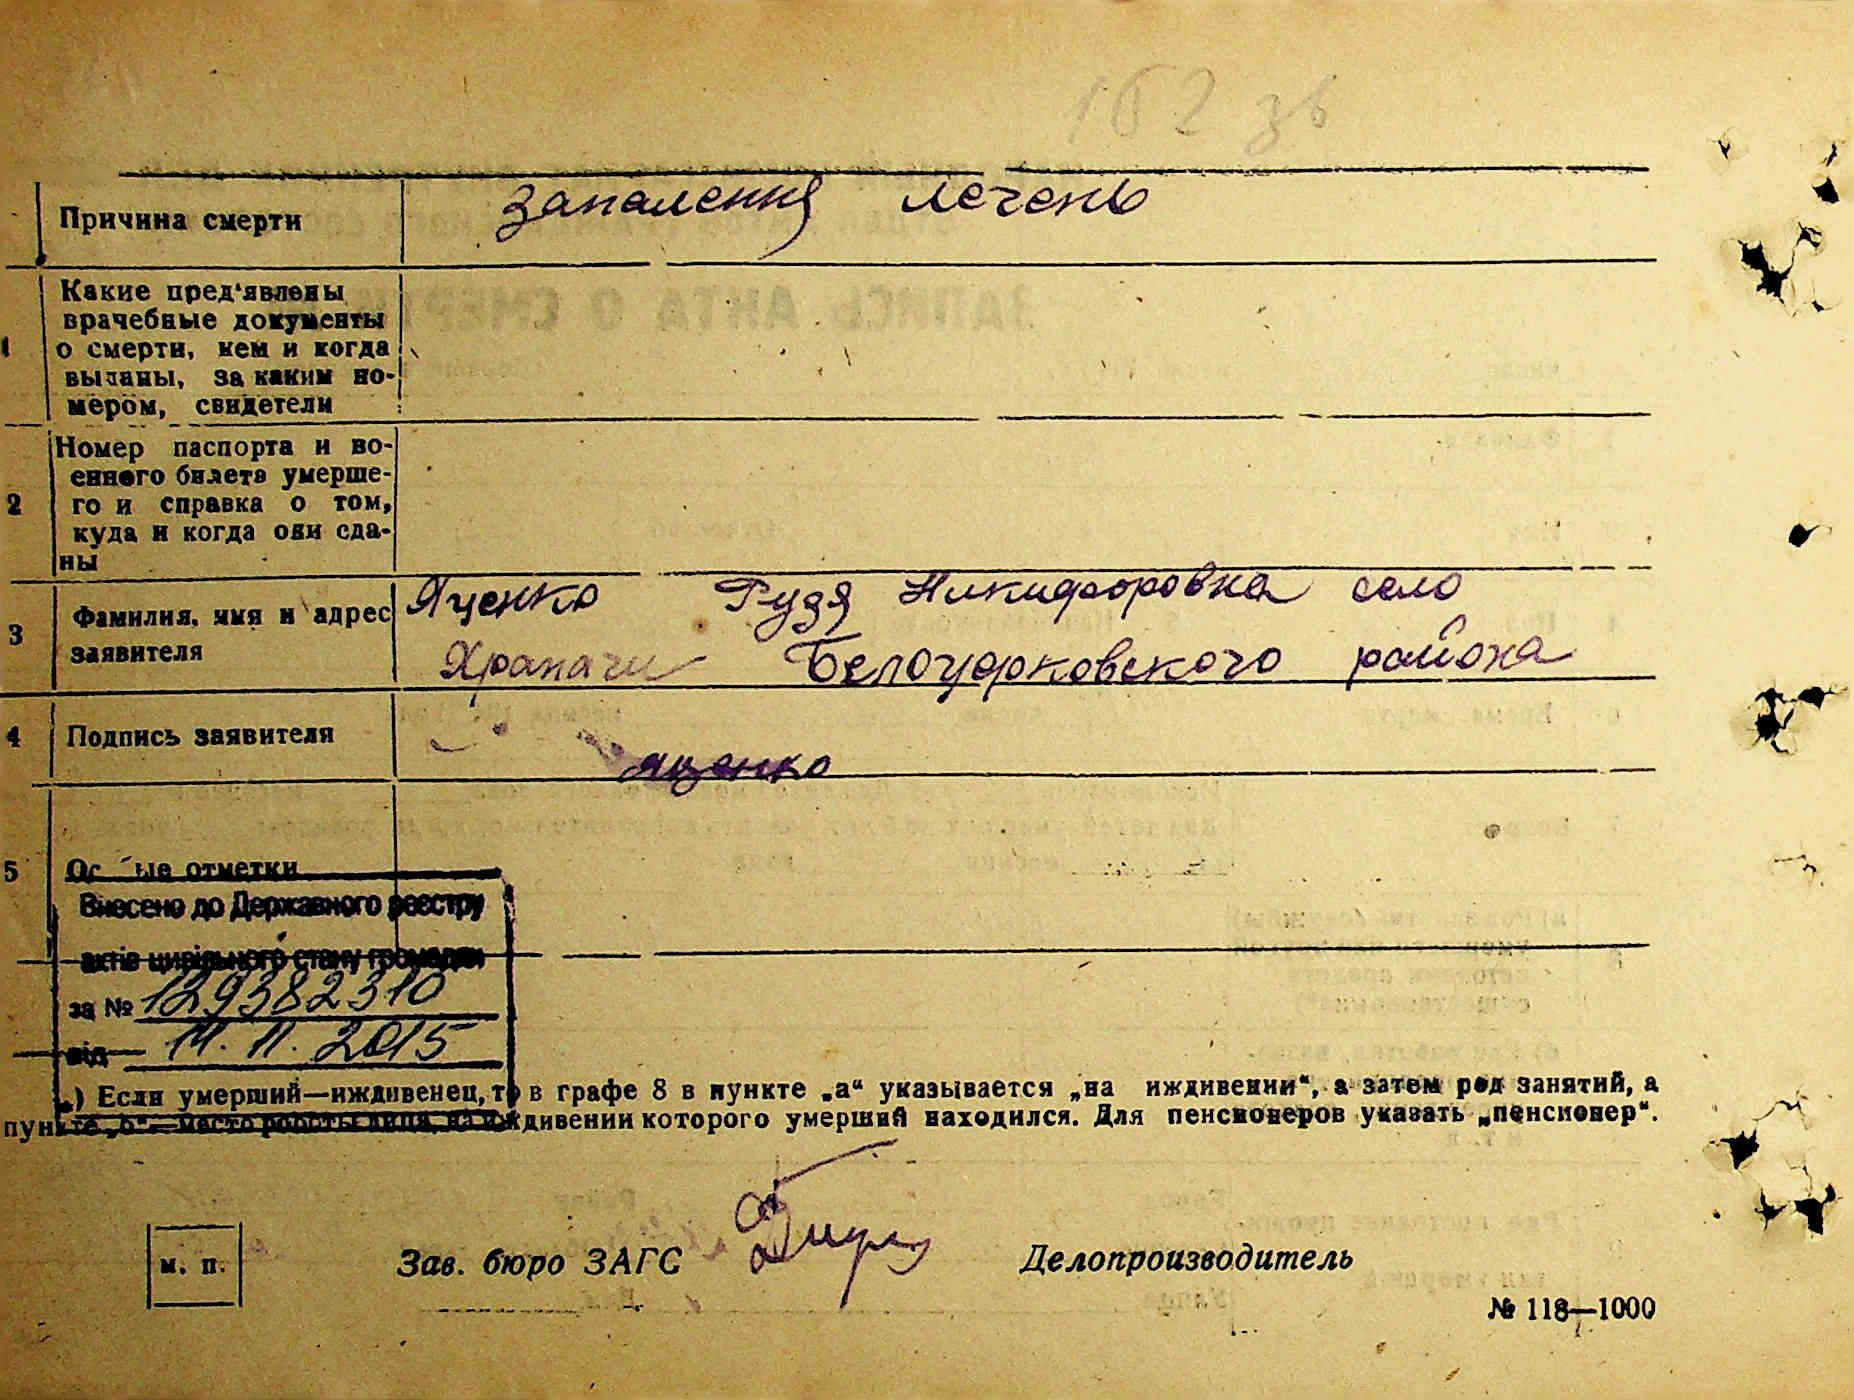 162 зв
запалення легень
Причина смерти
Какие пред'явлены
врачебные документы
1 о смерти, кем и когда
выданы, за каким но-
мером, свидетели
Номер паспорта и во-
енного билета умерше-
2 го и справка о том,
куда и когда они сда-
ны
Фамилия, имя и адрес
3 заявителя
Яценко Рудя Никифоровна село
Храпачи Белоцерковского района
4 Подпись заявителя
Яценко
5 Ос ые отметки
Внесено до Державного реєстру
актів цивільного стану громадян
за № 129382310
від 11. 11. 2015
) Если умерший—иждивенец, то в графе 8 в пункте „а“ указывается „на иждивении“, а затем род занятий, а
пункте „б“—место работы лица, на иждивении которого умерший находился. Для пенсионеров указать „пенсионер“.
м. п.
Зав. бюро ЗАГС
Делопроизводитель
№ 118—1000